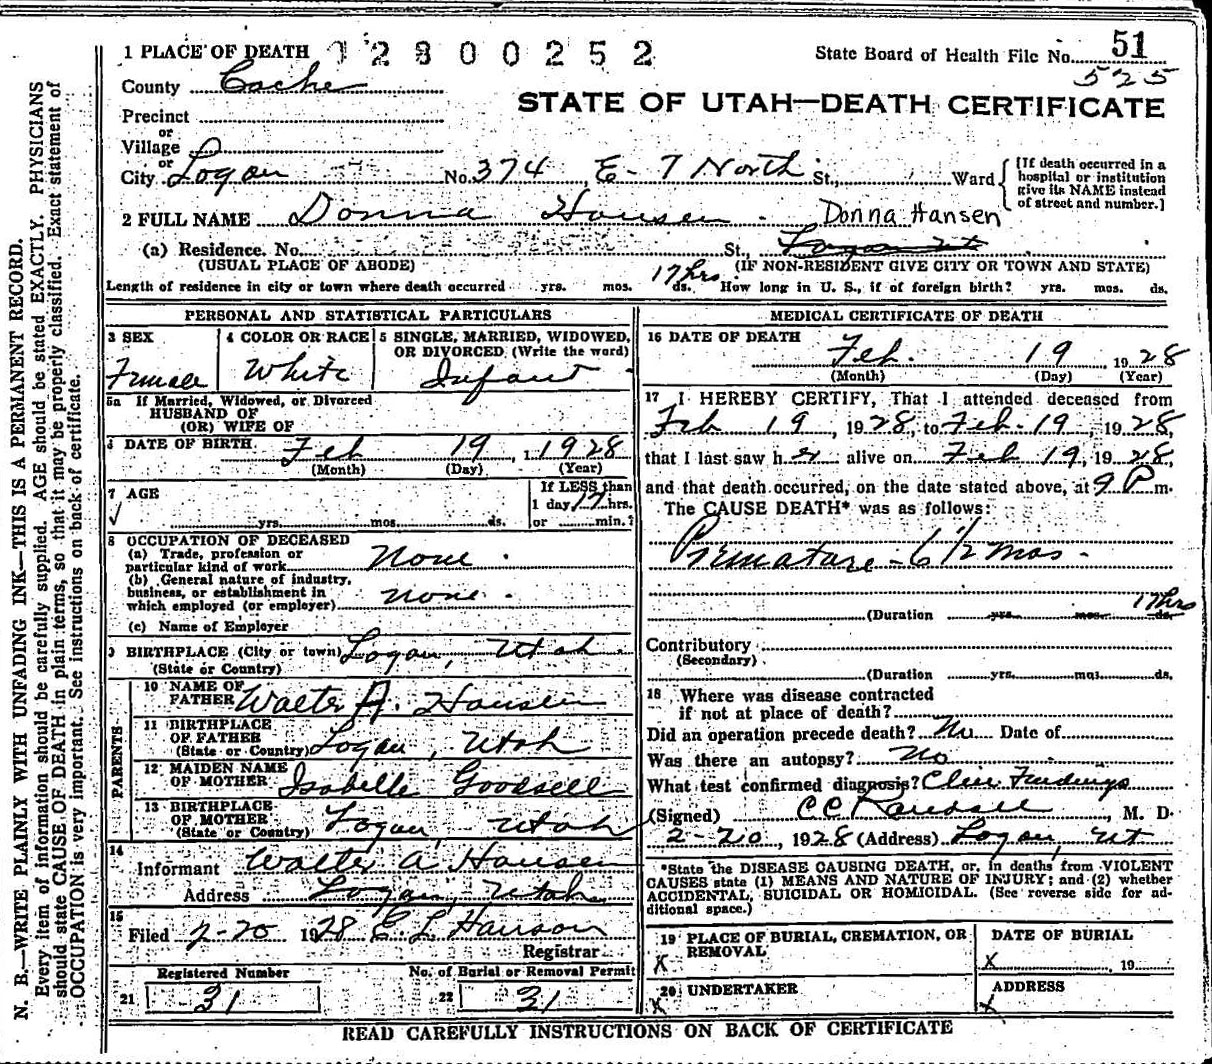 1 PLACE OF DEATH 12800252
State Board of Health File No. 51
525
County Cache
STATE OF UTAH—DEATH CERTIFICATE
Precinct
or
Village
or
City Logan No. 374 E- 7 North St., Ward
[If death occurred in a
hospital or institution
give its NAME instead
of street and number.]
2 FULL NAME Donna Hansen. Donna Hansen
(a) Residence. No. St., Logan Ut
(USUAL PLACE OF ABODE) (IF NON-RESIDENT GIVE CITY OR TOWN AND STATE)
Length of residence in city or town where death occurred yrs. mos. 17 hrs ds. How long in U. S., if of foreign birth? yrs. mos. ds.
PERSONAL AND STATISTICAL PARTICULARS
3 SEX
Female
4 COLOR OR RACE
White
5 SINGLE, MARRIED, WIDOWED,
OR DIVORCED (Write the word)
Infant
5a If Married, Widowed, or Divorced
HUSBAND OF
(OR) WIFE OF
6 DATE OF BIRTH Feb 19, 1928
(Month) (Day) (Year)
7 AGE
yrs. mos. ds.
If LESS than
1 day 17 hrs.
or min.?
8 OCCUPATION OF DECEASED
(a) Trade, profession or
particular kind of work None.
(b) General nature of industry,
business, or establishment in
which employed (or employer) None.
(c) Name of Employer
9 BIRTHPLACE (City or town) Logan, Utah.
(State or Country)
PARENTS
10 NAME OF
FATHER Walter A. Hansen
11 BIRTHPLACE
OF FATHER
(State or Country) Logan, Utah
12 MAIDEN NAME
OF MOTHER Isabelle Goodsell
13 BIRTHPLACE
OF MOTHER
(State or Country) Logan, Utah
14
Informant Walter A Hansen
Address Logan, Utah
15
Filed 2-20 1928 E. L Hanson
Registrar
Registered Number
21 31
No. of Burial or Removal Permit
22 31
MEDICAL CERTIFICATE OF DEATH
16 DATE OF DEATH
Feb. 19, 1928
(Month) (Day) (Year)
17 I HEREBY CERTIFY, That I attended deceased from
Feb 19, 1928, to Feb. 19, 1928,
that I last saw her alive on Feb 19, 1928,
and that death occurred, on the date stated above, at 9 P m.
The CAUSE DEATH* was as follows:
Premature - 6 1/2 mos.
(Duration yrs. mos. 17 hrs ds.
Contributory
(Secondary)
(Duration yrs. mos. ds.
18 Where was disease contracted
if not at place of death?
Did an operation precede death? No Date of
Was there an autopsy? No
What test confirmed diagnosis? Clin Findings
(Signed) CC Randall, M. D.
2-20, 1928 (Address) Logan, Ut
*State the DISEASE CAUSING DEATH, or, in deaths from VIOLENT
CAUSES state (1) MEANS AND NATURE OF INJURY; and (2) whether
ACCIDENTAL, SUICIDAL OR HOMICIDAL. (See reverse side for ad-
ditional space.)
19 PLACE OF BURIAL, CREMATION, OR
REMOVAL
X
DATE OF BURIAL
X, 19
20 UNDERTAKER
X
ADDRESS
X
READ CAREFULLY INSTRUCTIONS ON BACK OF CERTIFICATE
N. B.—WRITE PLAINLY WITH UNFADING INK—THIS IS A PERMANENT RECORD.
Every item of information should be carefully supplied. AGE should be stated EXACTLY. PHYSICIANS
should state CAUSE OF DEATH in plain terms, so that it may be properly classified. Exact statement of
OCCUPATION is very important. See instructions on back of certificate.